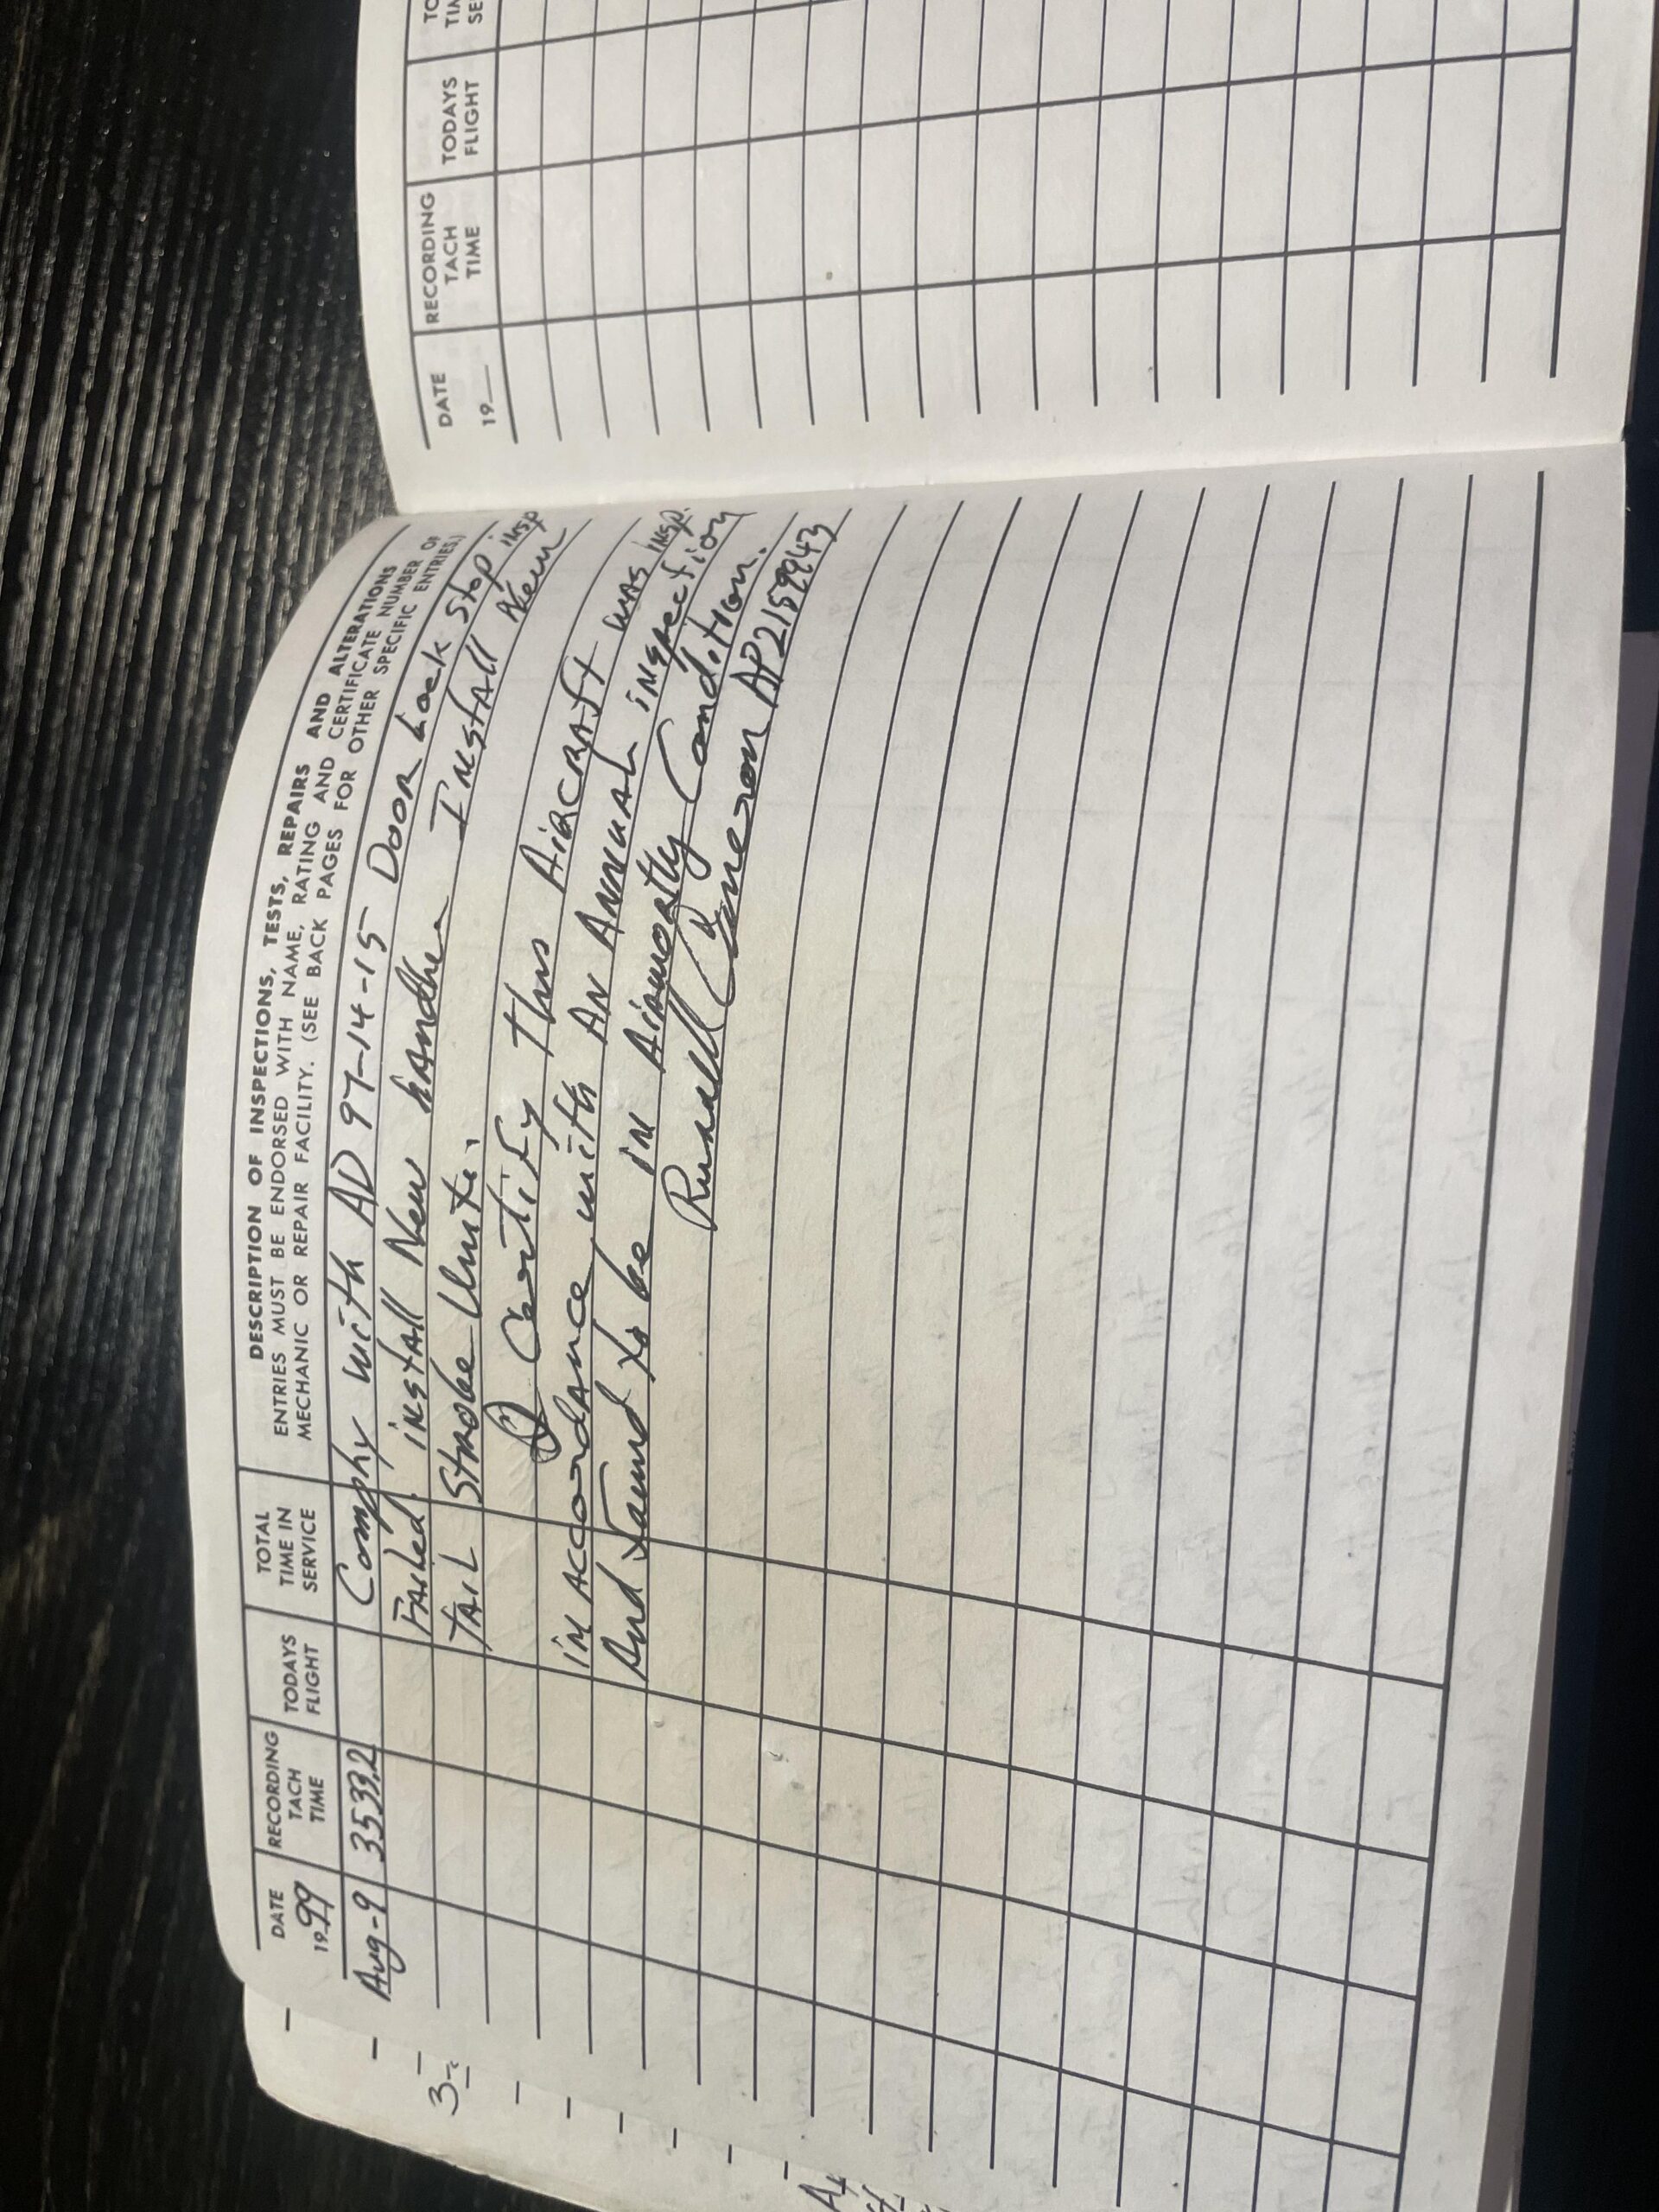 DATE
19 99
RECORDING TACH TIME
TODAYS FLIGHT
TOTAL TIME IN SERVICE
DESCRIPTION OF INSPECTIONS, TESTS, REPAIRS AND ALTERATIONS
ENTRIES MUST BE ENDORSED WITH NAME, RATING AND CERTIFICATE NUMBER OF
MECHANIC OR REPAIR FACILITY. (SEE BACK PAGES FOR OTHER SPECIFIC ENTRIES.)
Aug-9 3539.2 Comply with AD 97-14-15 Door Lock Stop insp
Failed. install New handle. Install New
Tail Strobe Unit.
I Certify this Aircraft was insp.
in accordance with An Annual inspection
And found to be in Airworthy Condition.
Russell Cameron AP2159943
DATE
19
RECORDING TACH TIME
TODAYS FLIGHT